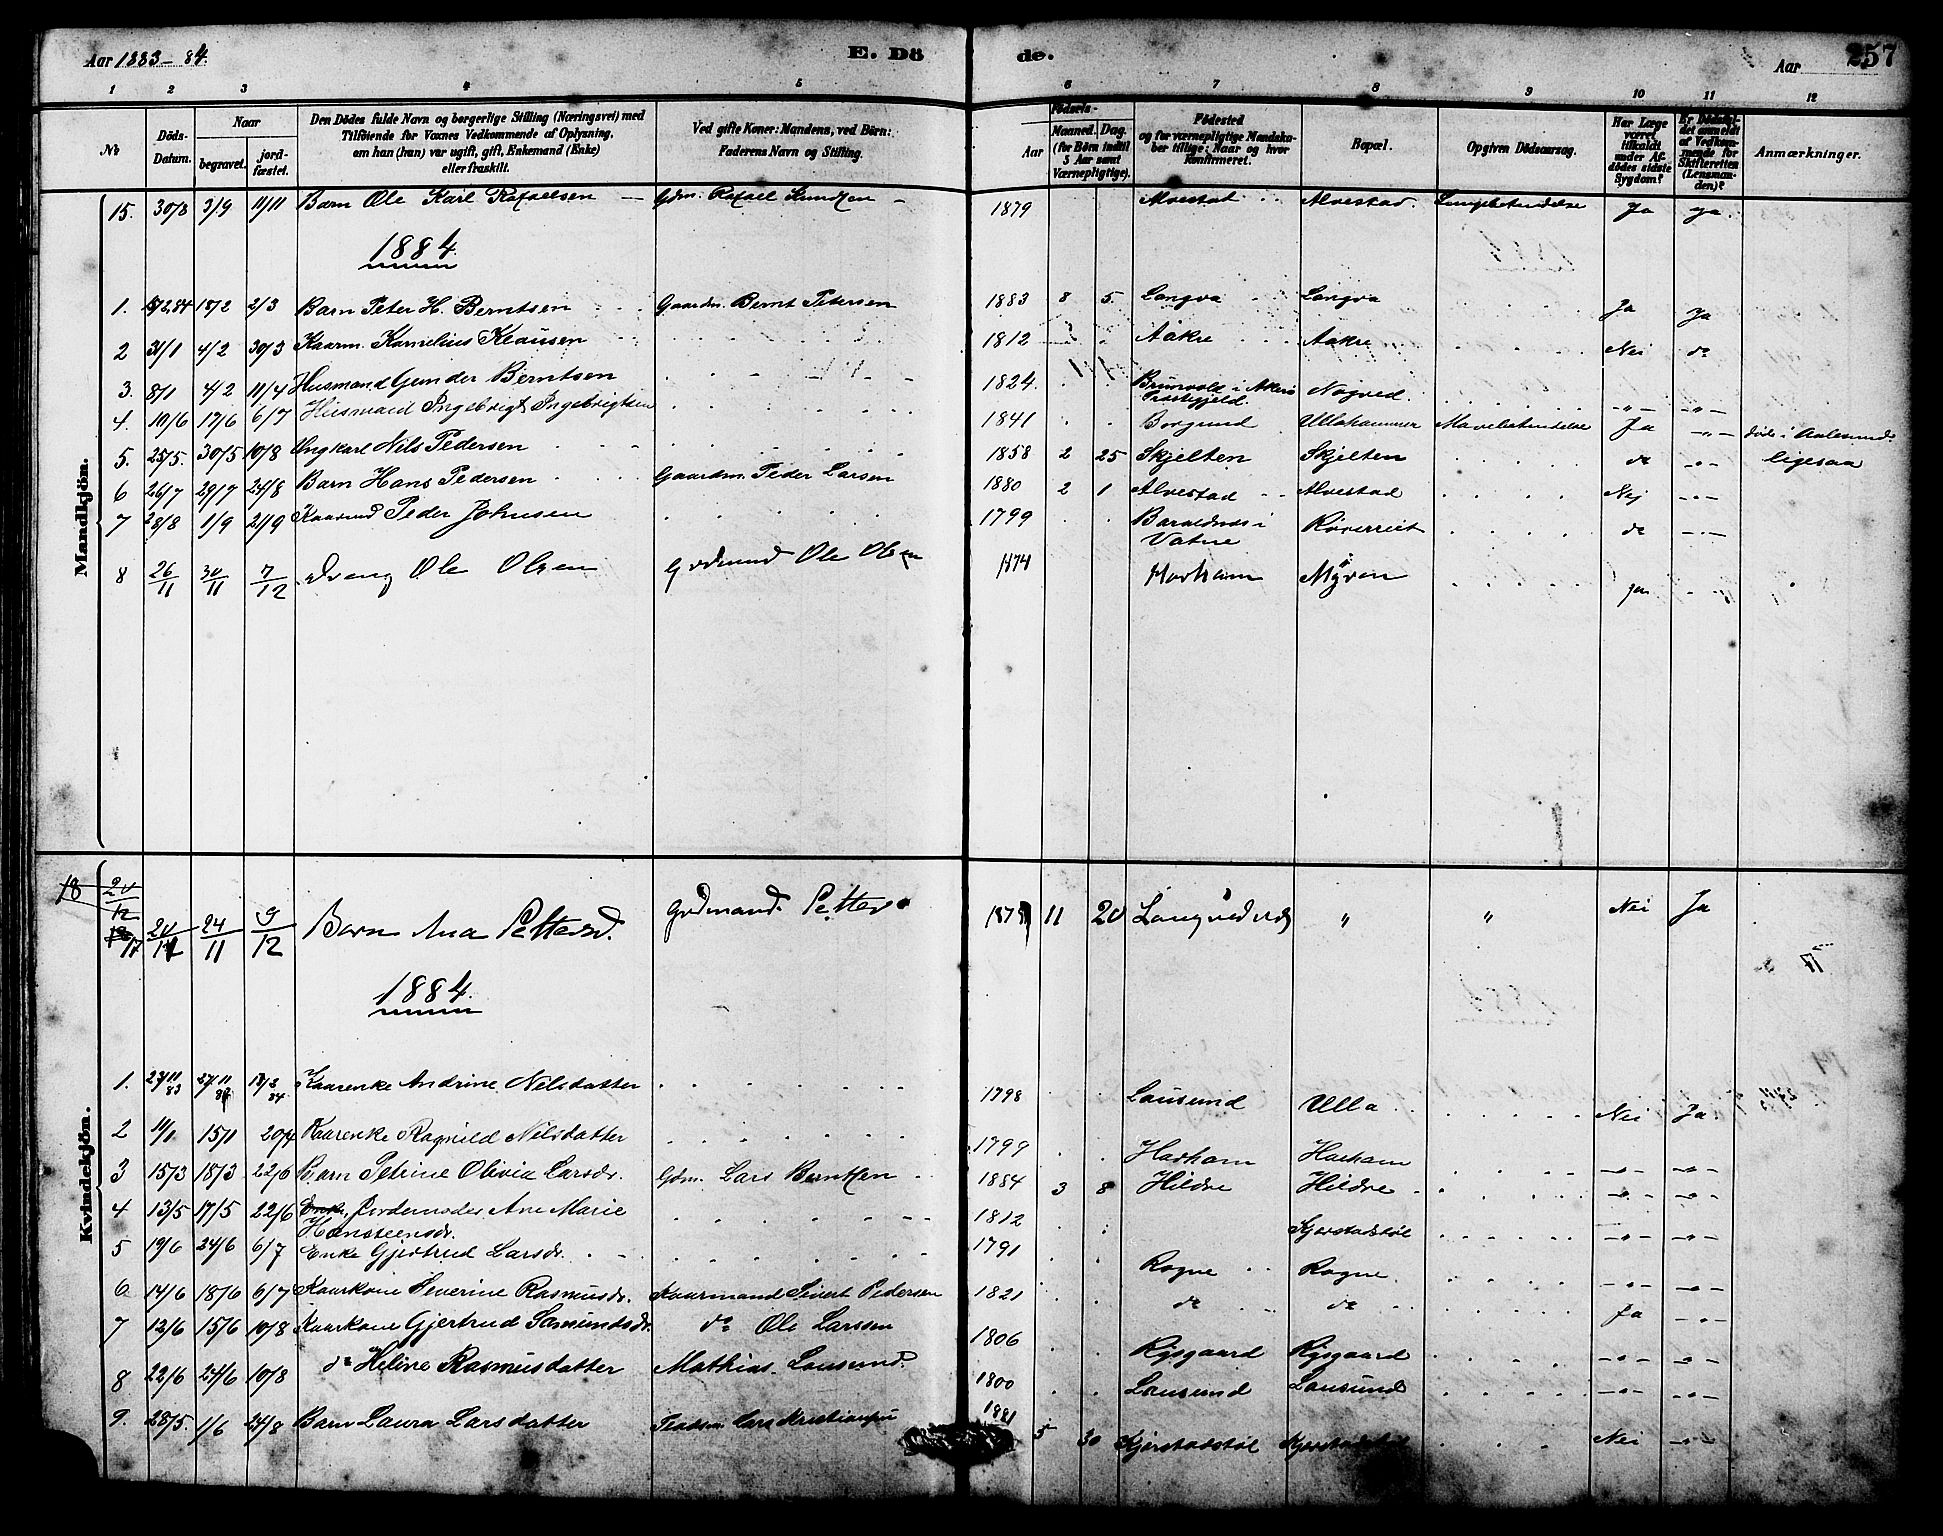 Aar 1883-84. E. Dö de. Aar 257
1 2 3 4 5 6 7 8 9 10 11 12
No
Döds-Datum.
Naar
begravet. jord-fæstet.
Den Dödes fulde Navn og borgerlige Stilling (Næringsvei) med
Tilföiende for Voxnes Vedkommende af Oplysning,
om han (hun) var ugift, gift, Enkemand (Enke)
eller fraskilt.
Ved gifte Koner: Mandens, ved Börn:
Faderens Navn og Stilling.
Födsels-
Aar Maaned. Dag.
(for Börn indtil
5 Aar samt
Værnepligtige).
Födested
og for værnepligtige Mandska-
ber tillige: Naar og hvor
konfirmeret.
Bopæl.
Opgiven Dödsaarsag.
Har Læge
været
tilkaldt
under Af-
dödes sidste
Sygdom?
Er Dödsfal-
det anmeldt
af Vedkom-
mende for
Skifteretten
(Lensman-
den)?
Anmærkninger.
Mandkjön.
15. 30/8 3/9 11/11 Barn Ole Karl Rafaelsen Gdm. Rafael Knudsen 1879 Alvestad Alvestad. Lungebetændelse Ja Ja.
1884.
1. 18/2 2/3 Barn Peter H. Berntsen Gaardm. Bernt Petersen 1883 8 5. Longva Longva Ja Ja
2 31/1 4/2 30/3 Kaarm. Kornelius Klausen 1812 Aakre Aakre Nei do
3. 8/1 4/2 11/4 Husmand Gunder Berntsen 1824. Brunvold i Akers Præstegjeld. Nogved. -"- -"-
4. 10/6 17/6 6/7 Husmand Ingebrigt Ingebrigtsen 1841 Borgund Ullahammer Mavebetændelse Ja -"- död i Aalesund
5. 25/5. 30/5 10/8 Ungkarl Nils Pedersen 1858 2 25 Skjelten Skjelten do -"- ligesaa
6 26/7 29/7 24/8 Barn Hans Pedersen Gaardm. Peder Larsen 1880 2 1 Alvestad Alvestad Nej -"-
7 28/8 1/9 21/9 Kaarmd Peder Johnsen 1799 Baraldsnes i Vatne Röverreit do -"-
8 26/11 30/11 7/12 dreng Ole Olsen Grdmand Ole Olsen 1874 Harham Myren ja
Kvindekjön.
18 20/12
17 20/11 24/11 9/12 Barn Ana Pettersd. Grdmand. Petter 11 20 Longva " " Nei Ja
1884.
1. 27/11 83 18/3 84 Kaarenke Andrine Nilsdatter 1798 Lausund Ulla Nei Ja
2 11/1 15/1 20/4 Kaarenke Ragnild Nilsdatter 1799 Harham Harham -"- -"-
3 15/3 18/3 22/6 Barn Petrine Olivia Larsdr. Gdm. Lars Berntsen 1884 3 8 Hildre Hildre -"- -"-
4 13/5 17/5 22/6 Enke, Jordemoder Ane Marie 1812 Kjerstadstöl -"- -"-
Hansteensdr.
5 19/6 24/6 6/7 Enke Gjertrud Larsdr. 1791 Rogne Rogne -"- -"-
6 14/6 18/6 6/7 Kaarkone Severine Rasmusdr. Kaarmand Sivert Pedersen 1821 do do Ja -"-
7 12/6 15/6 10/8 Kaarkone Gjertrud Samundsdr. do Ole Larssen 1806 Rysgaard Rysgaard -"- -"-
8 22/6 24/6 10/8 do Heline Rasmusdatter Mathias Lausund. 1800 Lausund Lausund -"- -"-
9. 28/5. 1/6 24/8 Barn Laura Larsdatter Lars Kristiansen 1881 5 30 Kjerstadstöl Kjerstadstöl Nei -"-